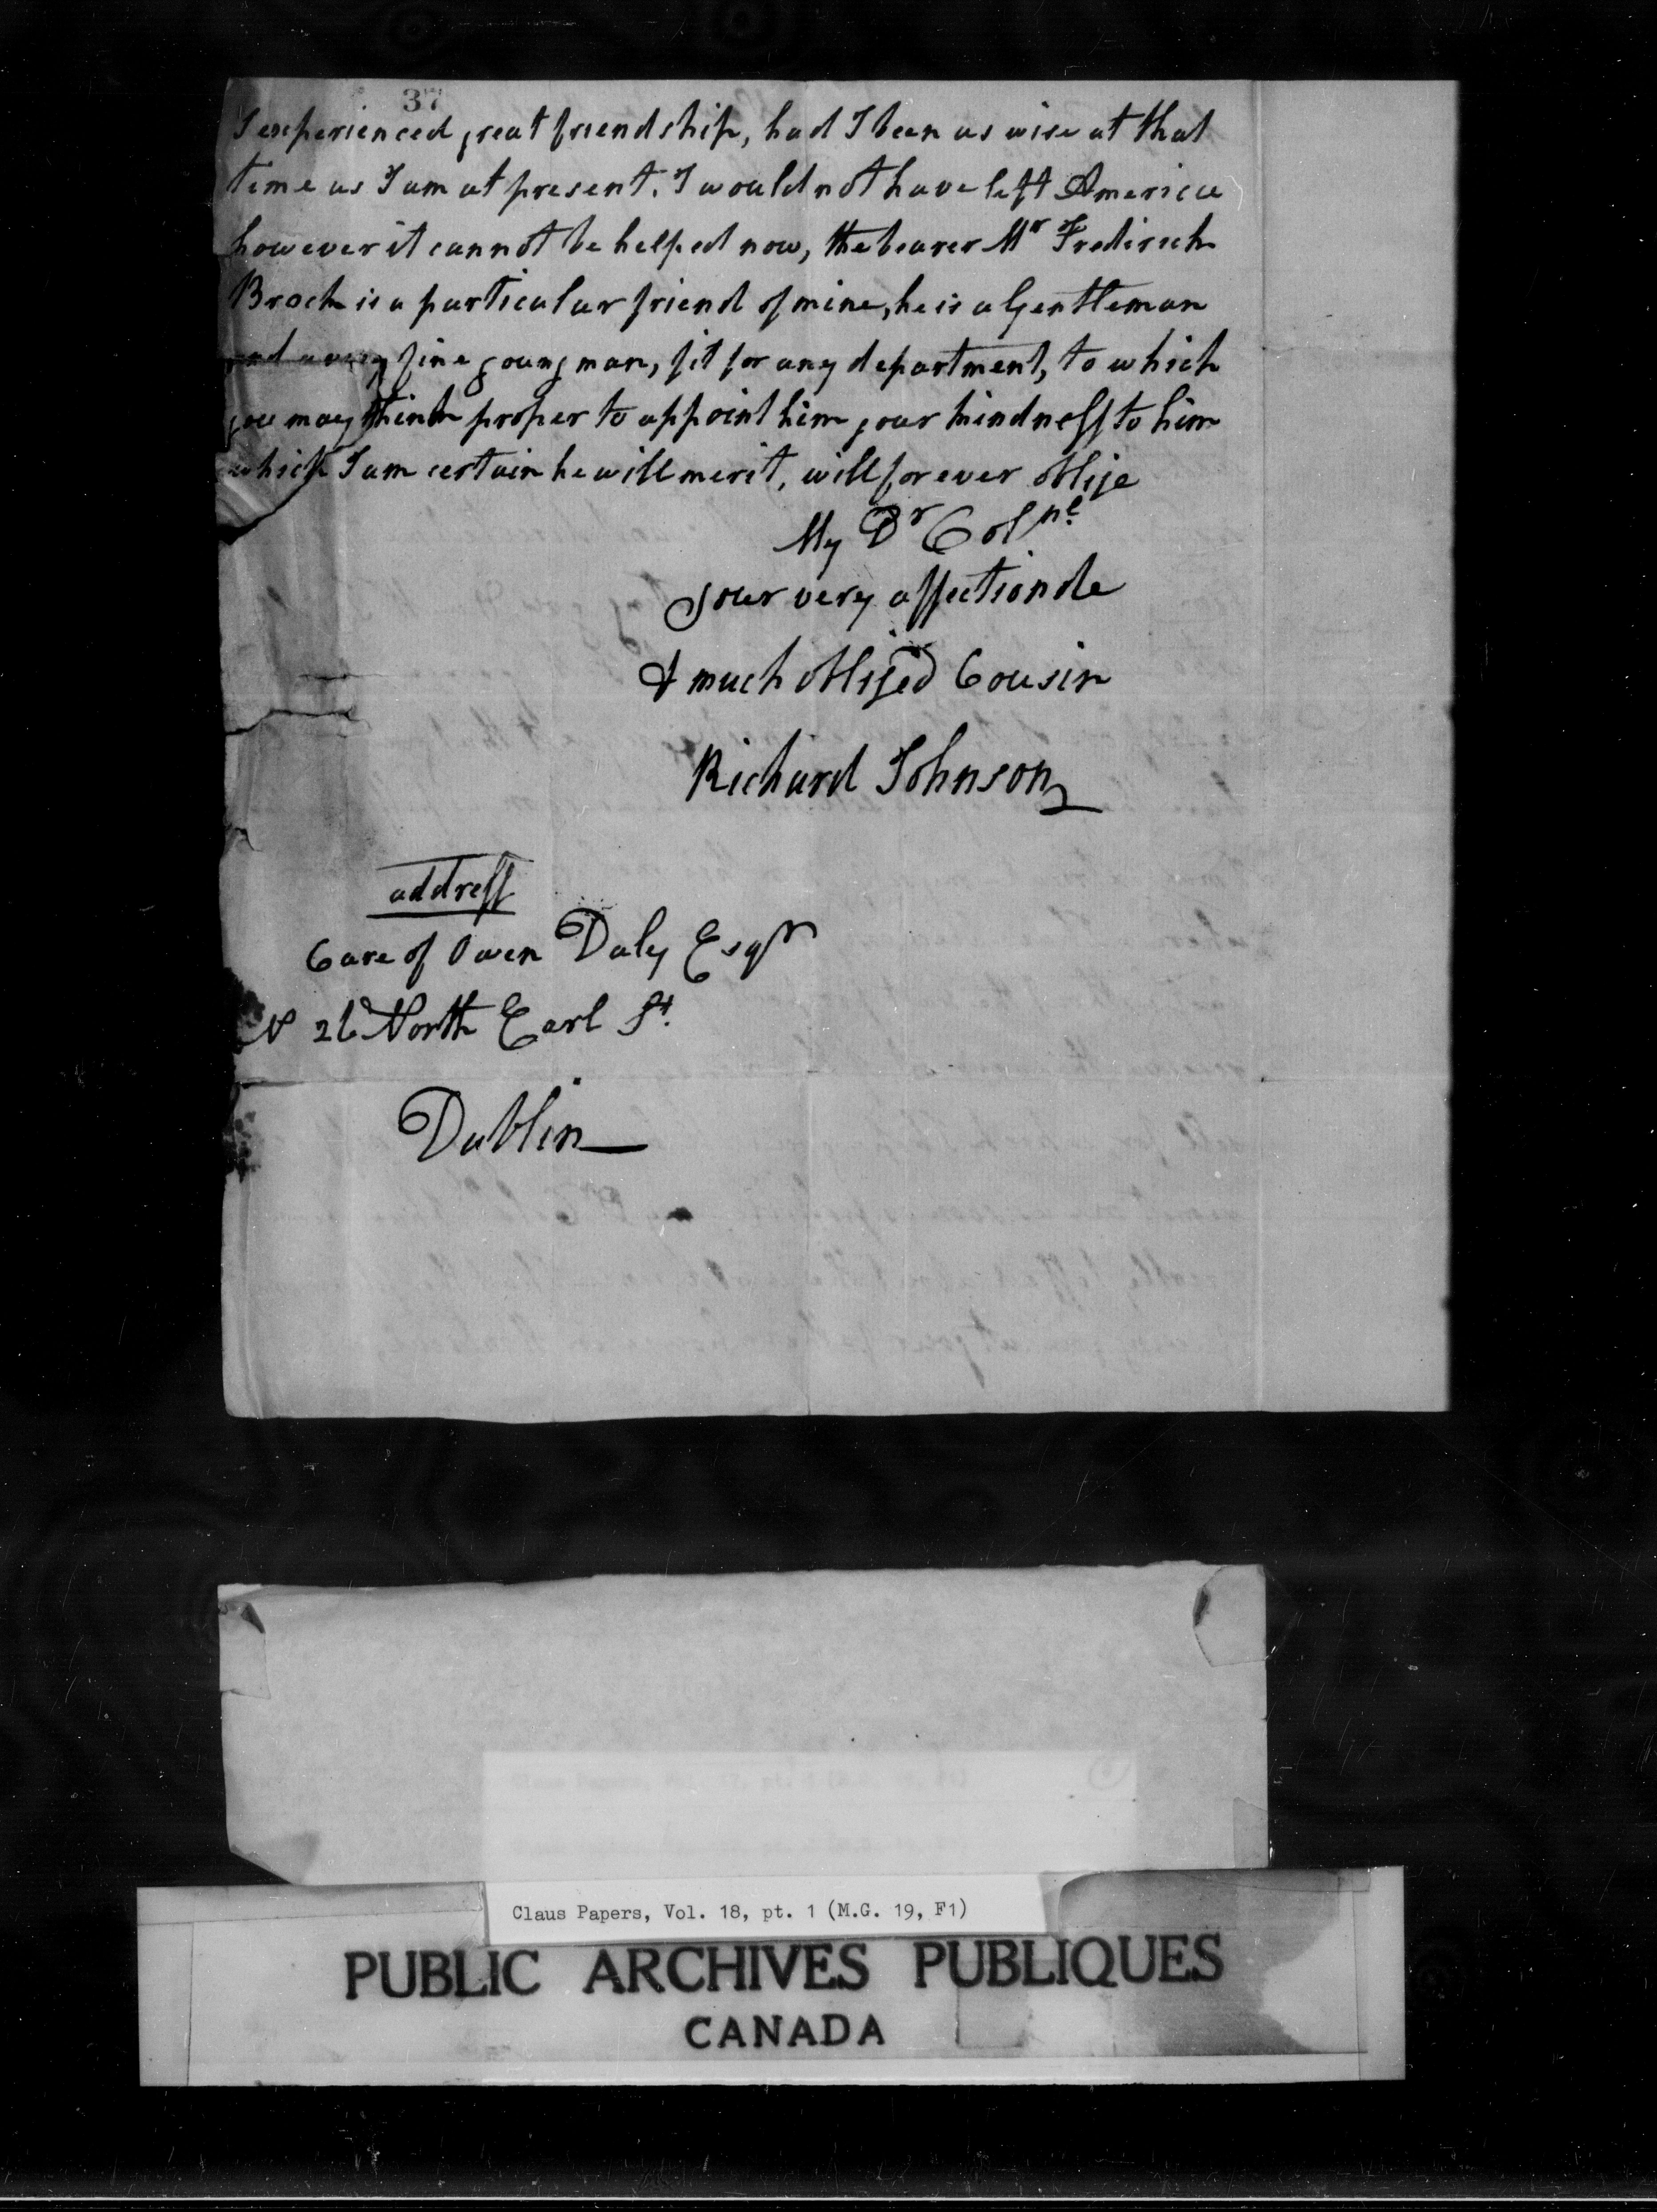 37
I experienced great friendship, had I been as wise at that
time as I am at present. I would not have left America
however it cannot be helped now, the bearer Mr Fredirick
Brock is a particular friend of mine, he is a Gentleman
and a very fine young man, fit for any department, to which
you may think proper to appoint him your kindness to him
which I am certain he will merit, will for ever oblige
My Dr Colnl
your very affectionate
& much obliged Cousin
Richard Johnson
address
Care of Owen Daly Esqr
N 26 North Earl St.
Dublin
Claus Papers, Vol. 18, pt. 1 (M.G. 19, F1)
PUBLIC ARCHIVES PUBLIQUES
CANADA